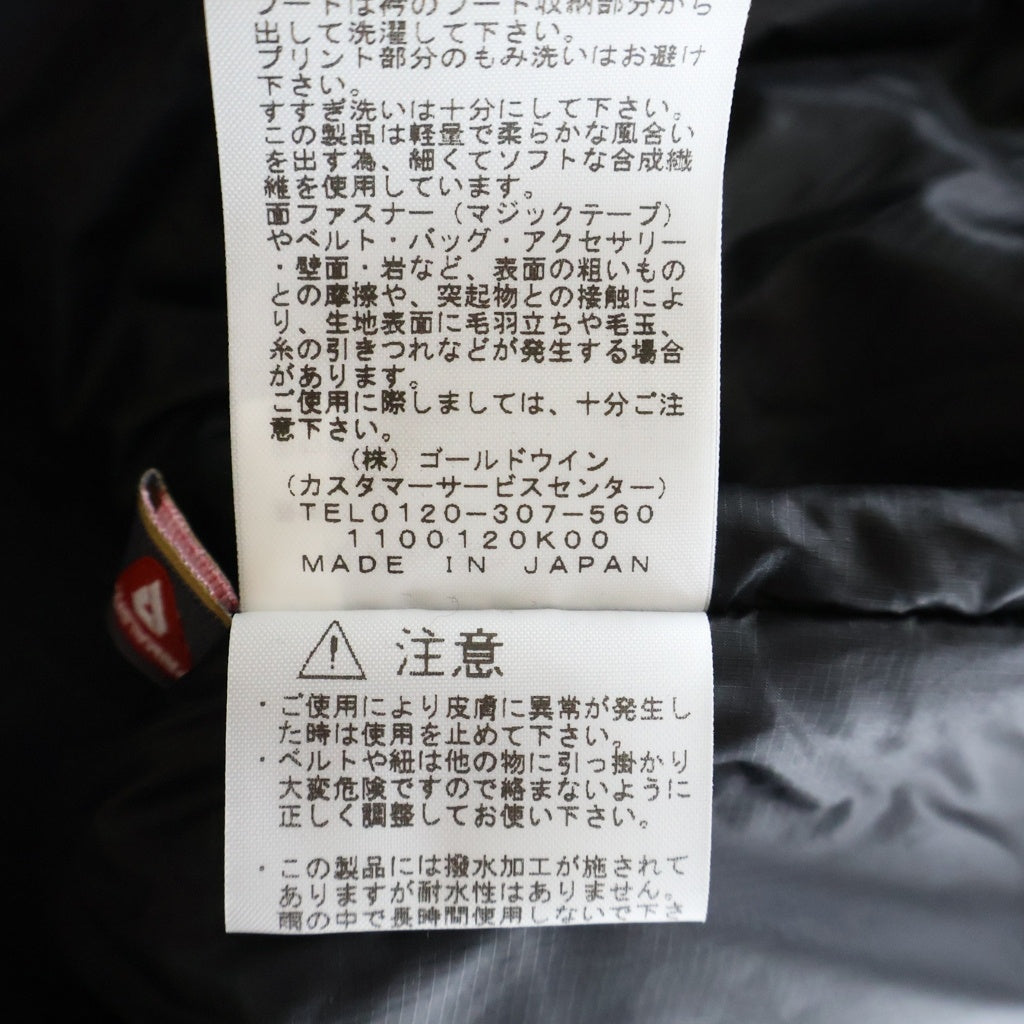 フードは衿のフード収納部分から
出して洗濯して下さい。
プリント部分のもみ洗いはお避け
下さい。
すすぎ洗いは十分にして下さい。
この製品は軽量で柔らかな風合い
を出す為、細くてソフトな合成繊
維を使用しています。
面ファスナー（マジックテープ）
やベルト・バッグ・アクセサリー
・壁面・岩など、表面の粗いもの
との摩擦や、突起物との接触によ
り、生地表面に毛羽立ちや毛玉、
糸の引きつれなどが発生する場合
があります。
ご使用に際しましては、十分ご注
意下さい。
（株）ゴールドウイン
（カスタマーサービスセンター）
TEL0120-307-560
1100120K00
MADE IN JAPAN
注意
・ご使用により皮膚に異常が発生し
た時は使用を止めて下さい。
・ベルトや紐は他の物に引っ掛かり
大変危険ですので絡まないように
正しく調整してお使い下さい。
・この製品には撥水加工が施されて
ありますが耐水性はありません。
雨の中で長時間使用しないで下さ